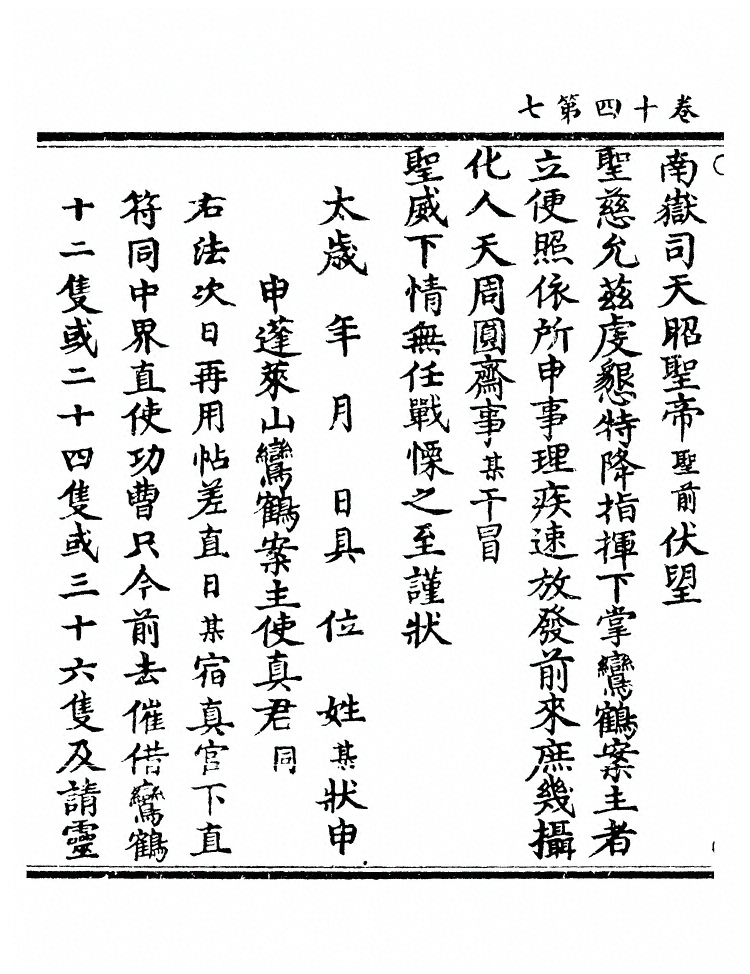 卷十四第七
南嶽司天昭聖帝聖前伏望
聖慈允茲虔懇特降指揮下掌鸞鶴案主者
立便照依所申事理疾速放發前來庶幾攝
化人天周圓齋事某干冒
聖威下情無任戰慄之至謹狀
太歲年月日具位姓某狀申
申蓬萊山鸞鶴案主使真君同
右法次日再用帖差直日某宿真官下直
符同中界直使功曹只今前去催借鸞鶴
十二隻或二十四隻或三十六隻及請靈